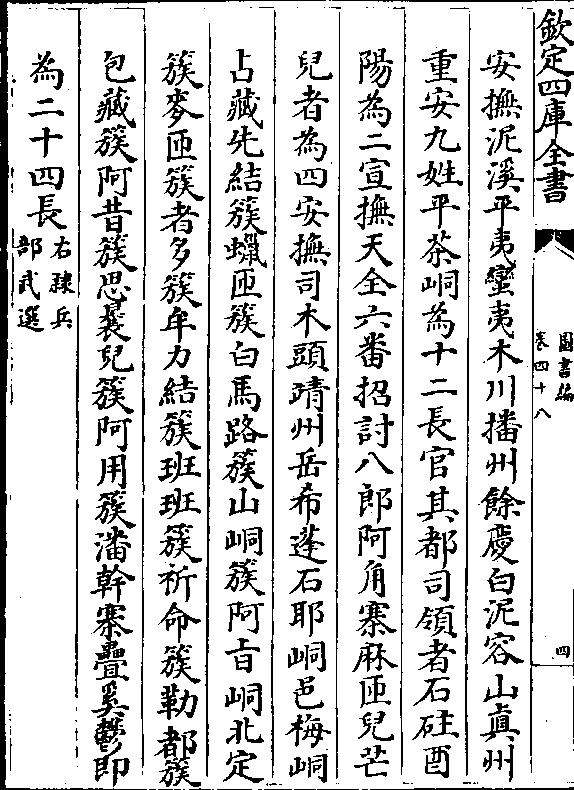 欽定四庫全書
圖書編
卷四十八
四
安撫泥溪平夷蠻夷木川播州餘慶白泥容山真州
重安九姓平茶峒為十二長官其都司領者石砫酉
陽為二宣撫天全六番招討八郎阿角寨麻匝兒芒
兒者為四安撫司木頭靖州岳希蓬石耶峒邑梅峒
占藏先結簇蠟匝簇白馬路簇山峒簇阿昔峒北定
簇麥匝簇者多簇牟力結簇班班簇祈命簇勒都簇
包藏簇阿昔簇思曩兒簇阿用簇潘幹寨疊奚鬱即
為二十四長右隸兵
部武選